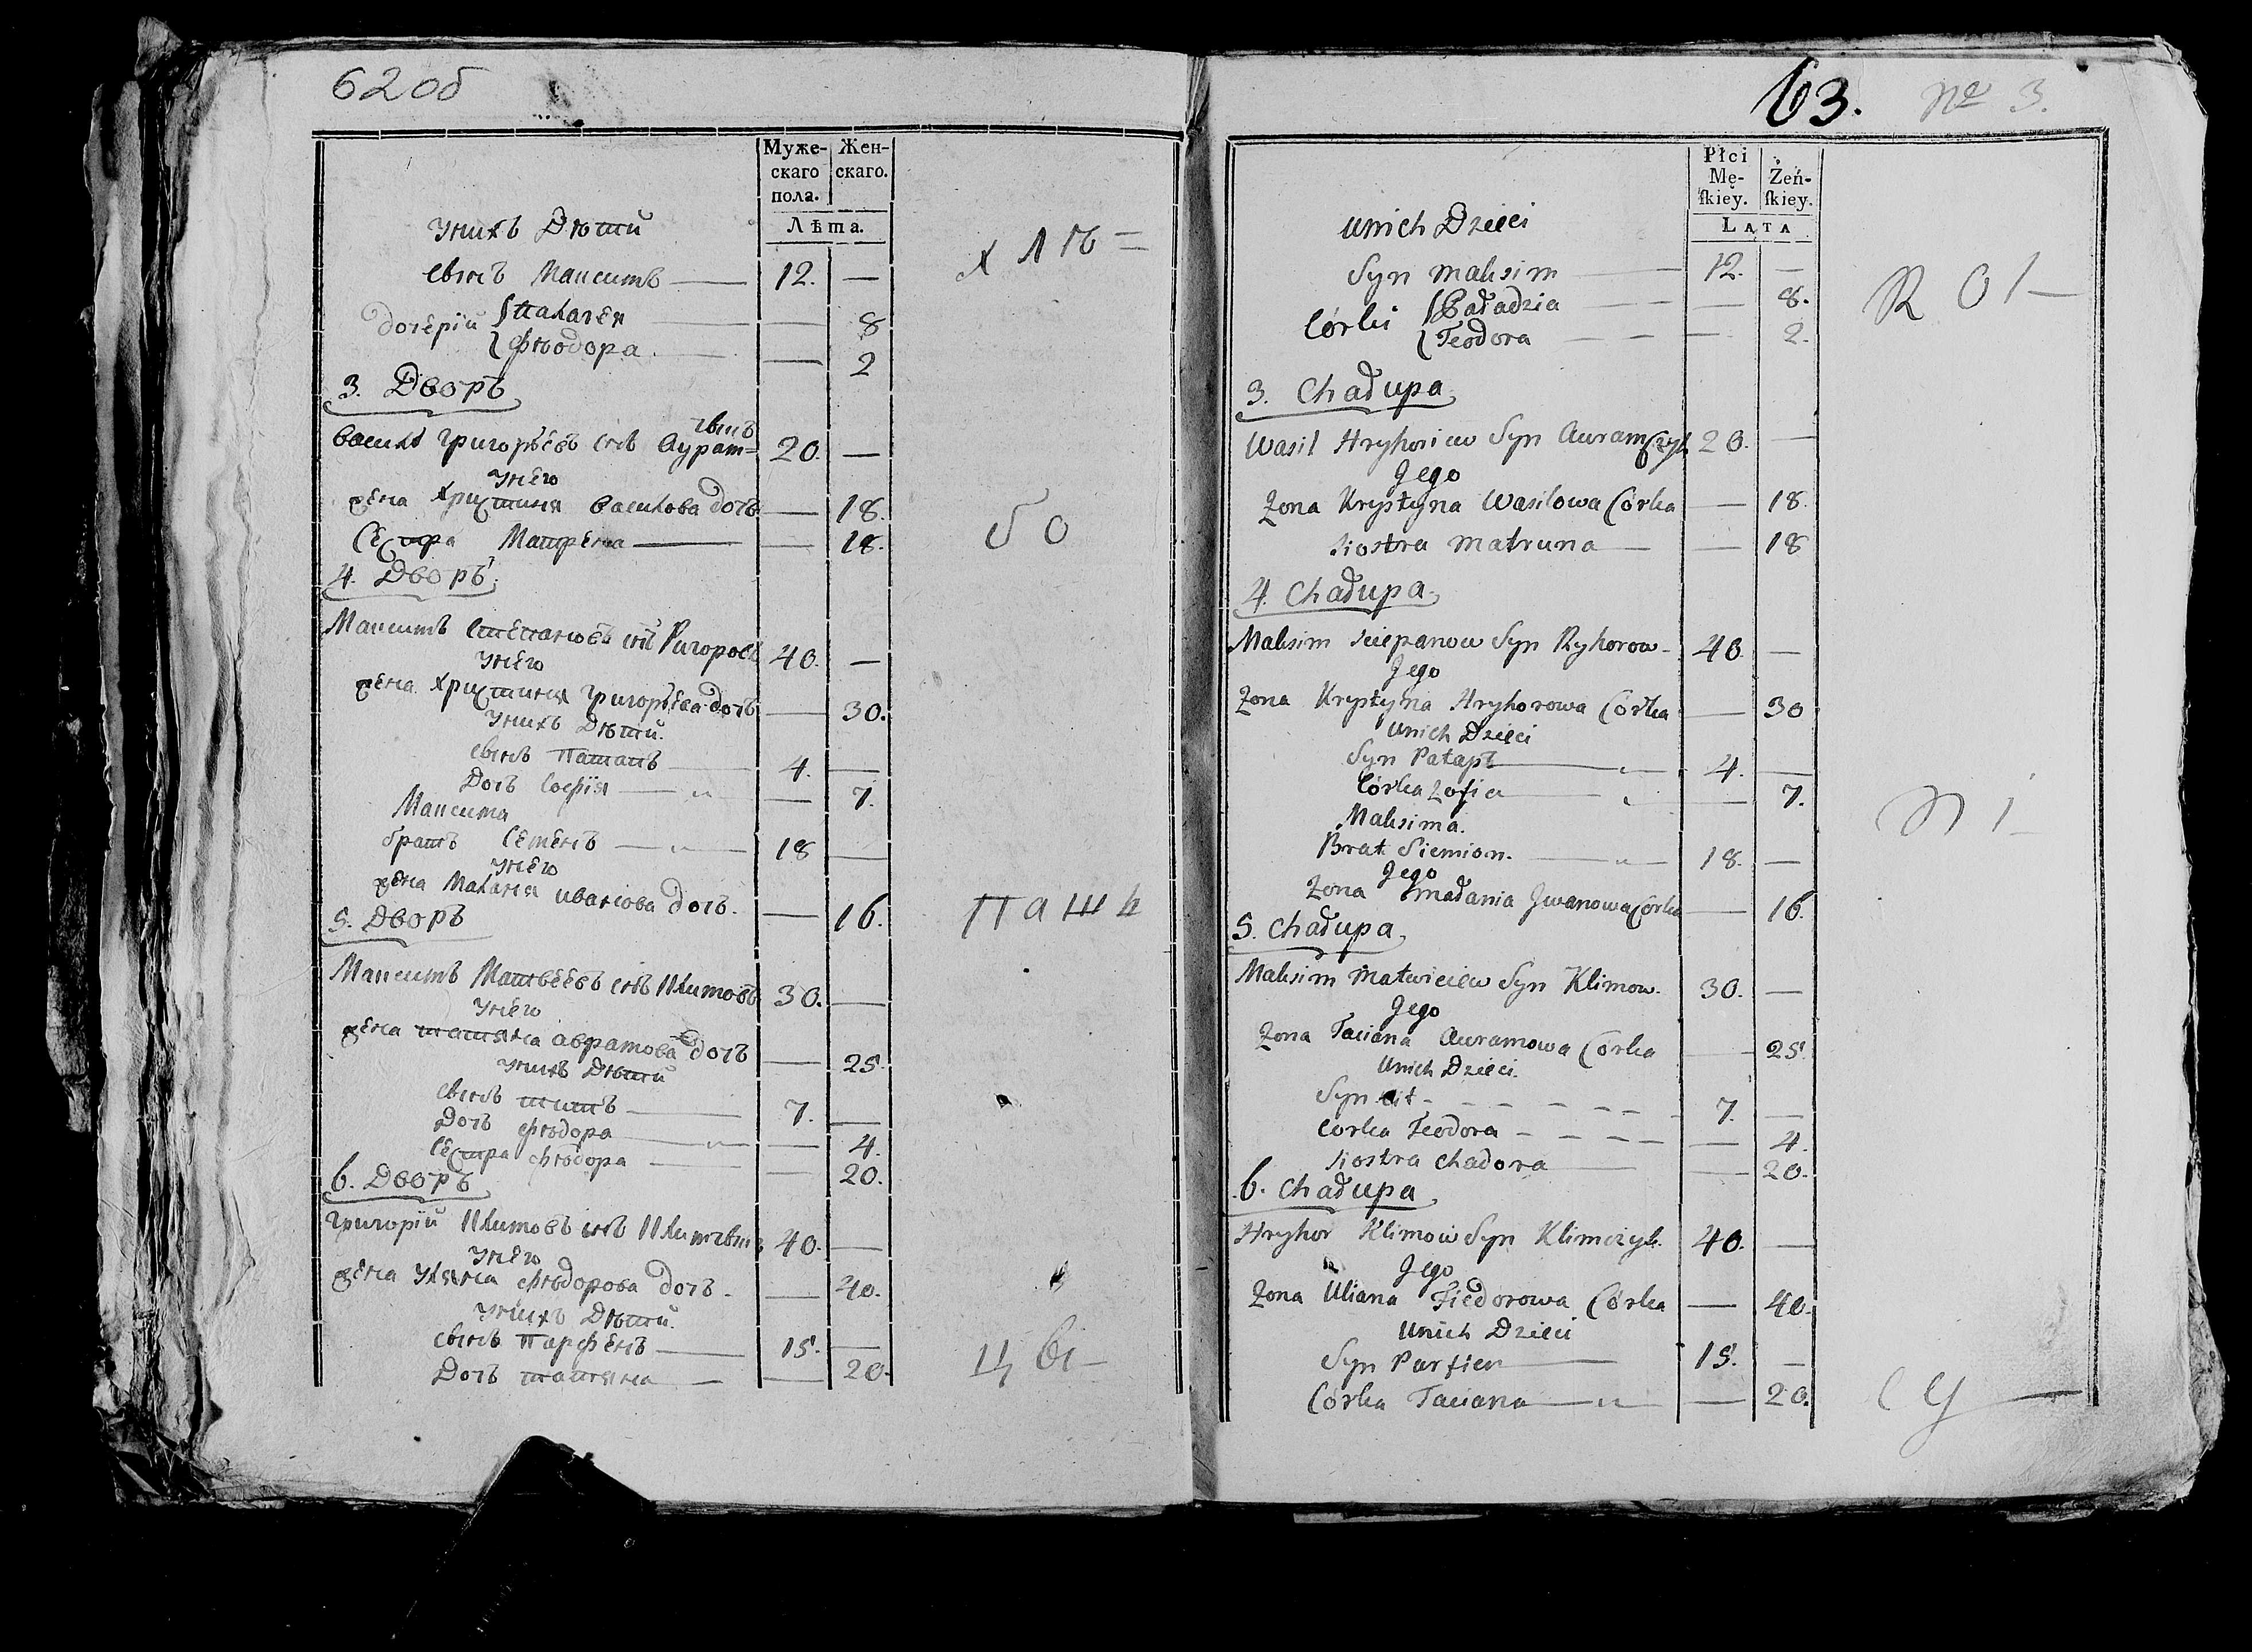 62об
Муже- Жен-
скаго скаго.
пола.
Лѣта.
Унихъ Дѣтй
Сынъ Максимъ — 12. —
Дочерїй Палагея — — 8
Фѣодора — — 2
хлѣ=
3. Дворъ
чыкъ
Василь Григорьевъ снъ Аурам= 20. —
Унего
жена Христиня Василова Дочь — 18.
Сестра Матрена — — 18.
бо
4. Дворъ
Максимъ Степановъ снъ Ригоровъ 40. —
Унего
жена Христиня Григорьева дочь — 30.
Унихъ Дѣтй.
Сынъ Патапъ — 4. —
Дочь Софїя — „ — 7.
Максима
братъ Семенъ — „ 18 —
Унего
жена Маланя иванова Дочь. — 16.
пашь
5. Дворъ
Максимъ Матвеевъ снъ Климовъ 30. —
Унего
жена татяна аврамова дочь — 25.
Унихъ Дѣтй
Сынъ титъ — 7. —
Дочь Фѣдора — „ — 4.
Сестра Фѣдора — — 20.
6. Дворъ
Григорїй Климовъ снъ Климчыкъ 40. —
Унего
жена Уляна Фѣдорова Дочь. — 40.
Унихъ Дѣтй.
Сынъ Парфенъ — 15. —
Дочь татяна — — 20.
63. № 3.
Płci
Mę- Żeń-
ſkiey. ſkiey.
Lata
Unich Dzieci
Syn Maksim — 12. —
Córki Paładzia — — 8.
Teodora — — 2.
R O l—
3. Chałupa.
Wasil Hryhoriew Syn Auramczyk 20. —
Jego
Żona Krystyna Wasilowa Córka — 18.
Siostra Matruna — — 18
4. Chałupa.
Maksim Sciepanow Syn Ryhorow- 40. —
Jego
Żona Krystyna Hryhorowa Córka — 30
Unich Dzieci
Syn Patap — „ 4. —
Córka Zofia — „ — 7.
Maksima.
Brat Siemion. — „ 18. —
Jego
Żona Małania Jwanowa Córka — 16.
5. Chałupa.
Maksim Matwieiew Syn Klimow. 30. —
Jego
Żona Taciana Auramowa Córka — 25.
Unich Dzieci.
Syn — 7. —
Córka Teodora — — 4.
Siostra Chadora — — 20.
6. Chałupa.
Hryhor Klimow Syn Klimczyk. 40. —
Jego
Żona Uliana Fiedorowa Córka — 40.
Unich Dzieci
Syn Parfien — 15. —
Córka Taciana — „ — 20.